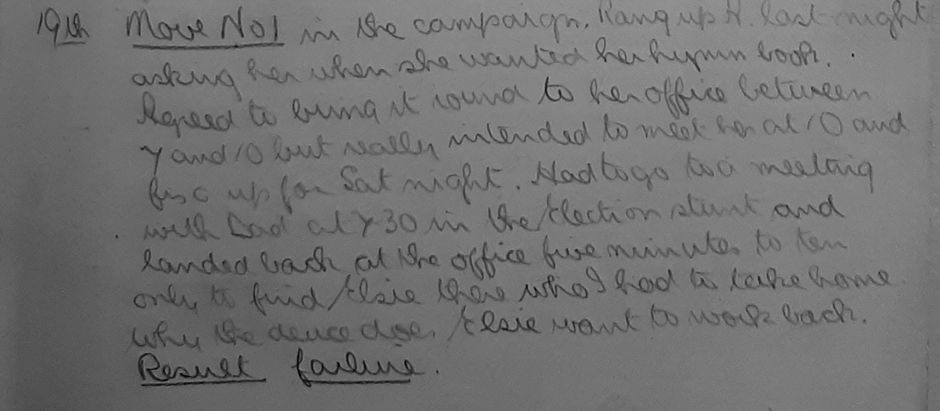 19th Move No1 in the campaign. Rang up H. last night
asking her when she wanted her hymn book.
Agreed to bring it round to her office between
7 and 10 but really intended to meet her at 10 and
fix up for Sat night. Had to go to a meeting
with Dad at 7.30 in the Election stunt and
landed back at the office five minutes to ten
only to find Elsie there who I had to take home
why the deuce does Elsie want to work back.
Result failure.